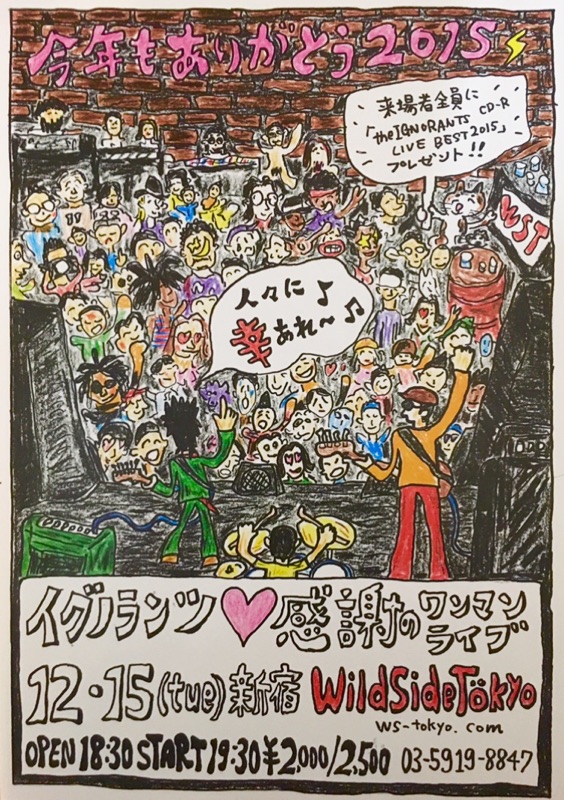 今年もありがとう2015
来場者全員に
「theIGNORANTS CD-R
LIVE BEST2015」
プレゼント!!
WST
人々に♪
幸あれ〜♫
イグノランツ♥感謝のワンマン
ライブ
12・15(tue)新宿 WildSideTökyo
ws-tokyo.com
OPEN 18:30 START 19:30 ¥2,000/2,500 03-5919-8847